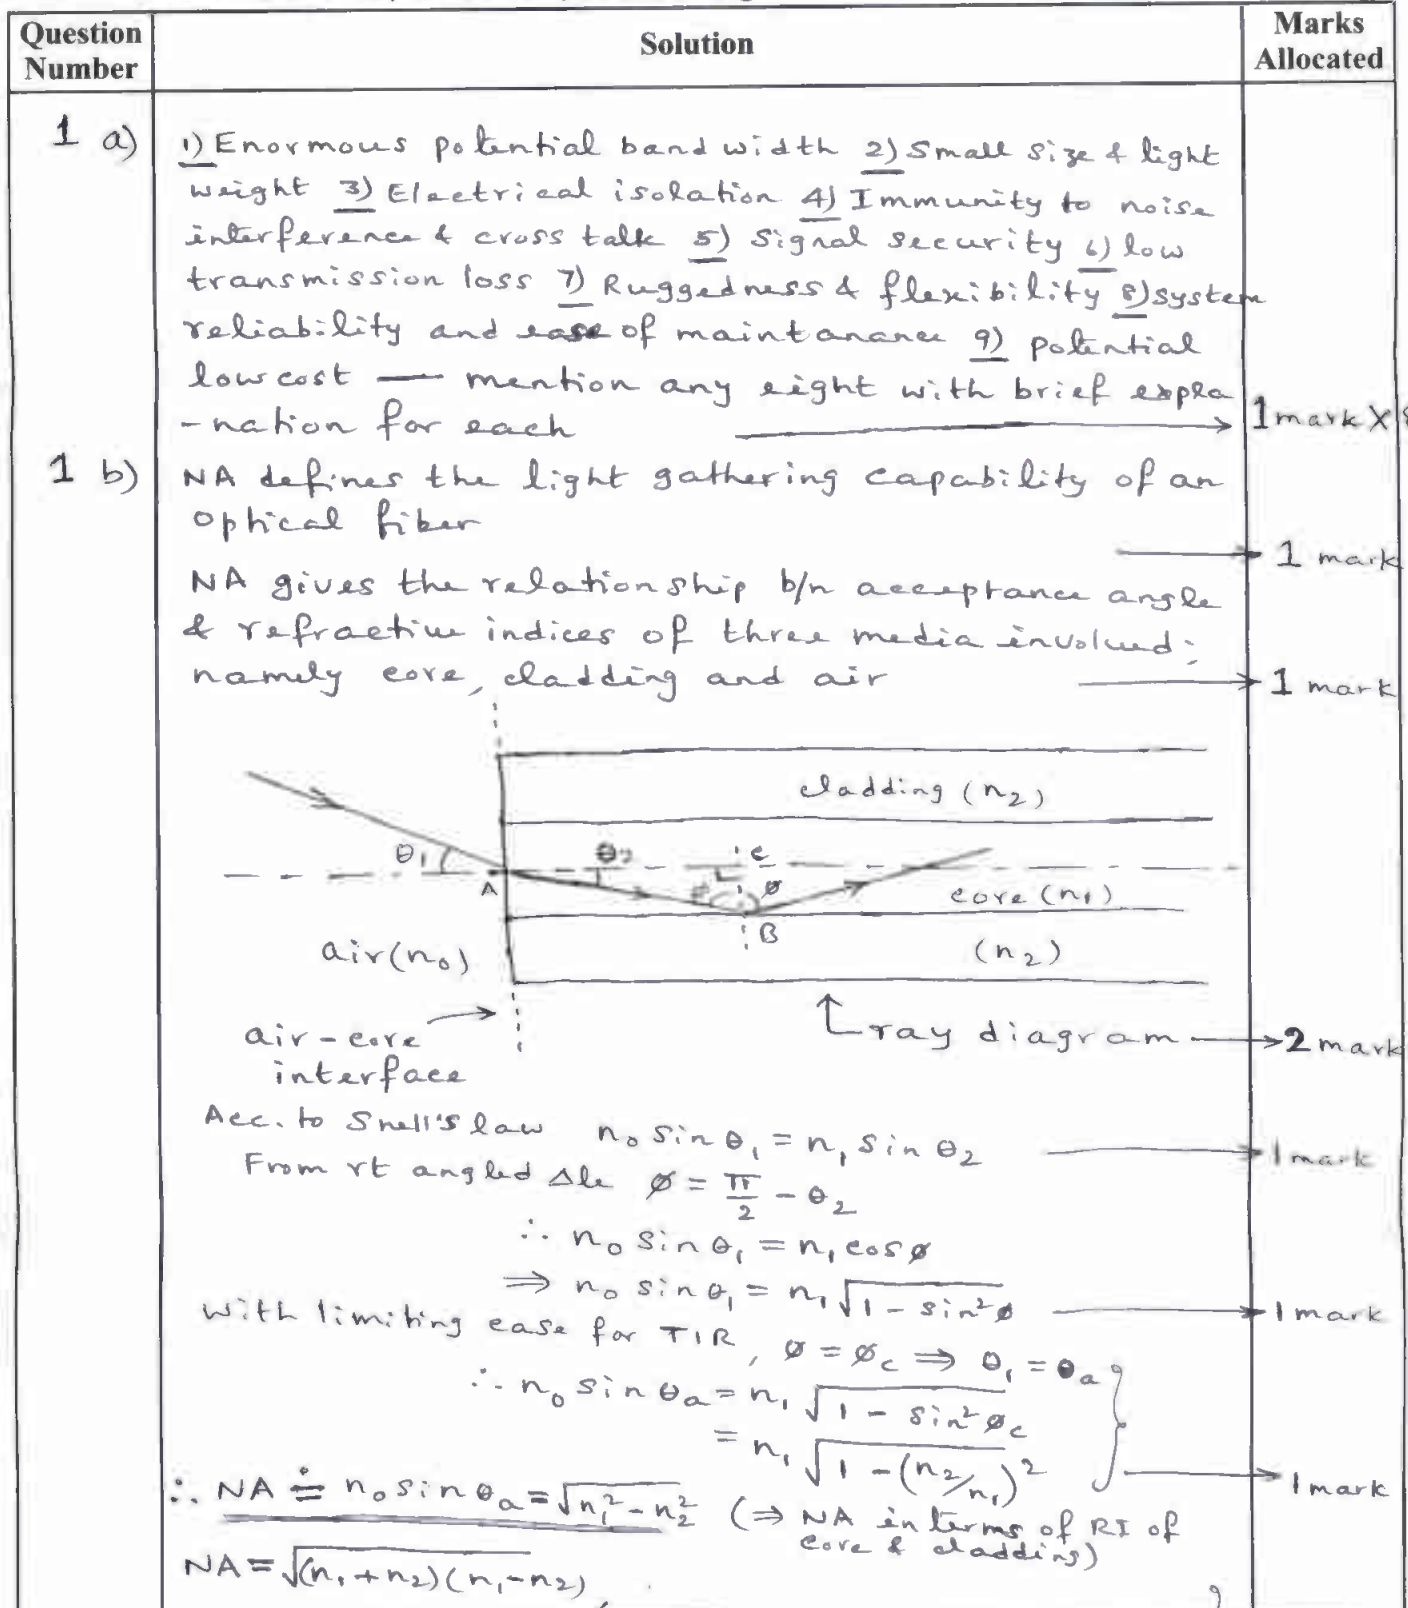 Question Number
Solution
Marks Allocated
1 a)
1) Enormous potential band width 2) Small size & light
weight 3) Electrical isolation 4) Immunity to noise
interference & cross talk 5) Signal security 6) low
transmission loss 7) Ruggedness & flexibility 8) system
reliability and ease of maintanance 9) potential
low cost — mention any eight with brief expla
-nation for each → 1 mark X
1 b)
NA defines the light gathering capability of an
optical fiber
→ 1 mark
NA gives the relationship b/n acceptance angle
& refractive indices of three media involved;
namely core, cladding and air → 1 mark
cladding (n₂)
θ₁ θ₂ C
A φ core (n₁)
B
air (n₀) (n₂)
air-core
interface
ray diagram → 2 mark
Acc. to Snell's law n₀ sin θ₁ = n₁ sin θ₂ → 1 mark
From rt angled Δle φ = π/2 - θ₂
∴ n₀ sin θ₁ = n₁ cos φ
⇒ n₀ sin θ₁ = n₁ √(1 - sin²φ) → 1 mark
With limiting case for TIR, φ = φc ⇒ θ₁ = θa
∴ n₀ sin θa = n₁ √(1 - sin²φc)
= n₁ √(1 - (n₂/n₁)²) → 1 mark
∴ NA ≐ n₀ sin θa = √(n₁² - n₂²) (⇒ NA in terms of RI of
core & cladding)
NA = √((n₁ + n₂)(n₁ - n₂))